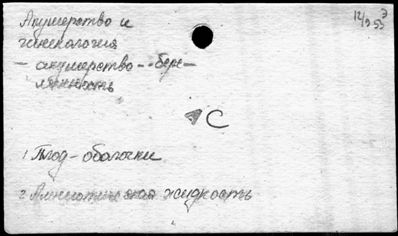 Акушерство и
гинекология
- акушерство - бере-
менность
12/э 53
С
1 Плод - оболочки
2 Амниотическая жидкость